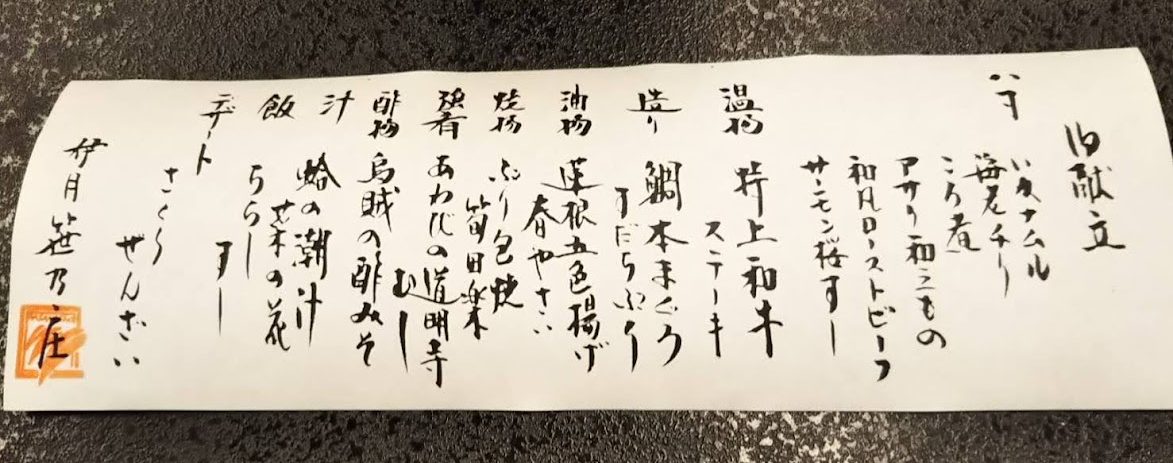 御献立
八寸
いタナムル
海老チリ
ころ煮
アサリ和えもの
和風ローストビーフ
サーモン桜すし
温物
特上和牛
ステーキ
造り
鯛本まぐろ
すだちぶり
油物
蓮根五色揚げ
春やさい
焼物
ぶり包焼
筍田楽
強肴
あわびの道明寺
むし
酢物
烏賊の酢みそ
汁
蛤の潮汁
菜の花
飯
ちらし
すし
デザート
さくら
ぜんざい
伊月 笹乃庄